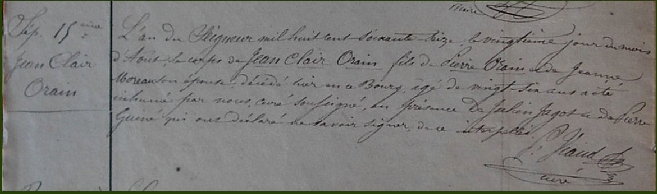 Sep. 15ème
Jean Clair
Orain
L'an du Seigneur mil huit cent soixante seize le vingtième jour du mois
d'Août le corps de Jean Clair Orain fils de Pierre Orain et de Jeanne
Moreau son épouse décédé hier en ce Bourg âgé de vingt six ans a été
inhumé par nous, curé soussigné, en présence de Julien Jagot et de Pierre
Guiné qui ont déclaré ne savoir signer, de ce interpellés.
curé